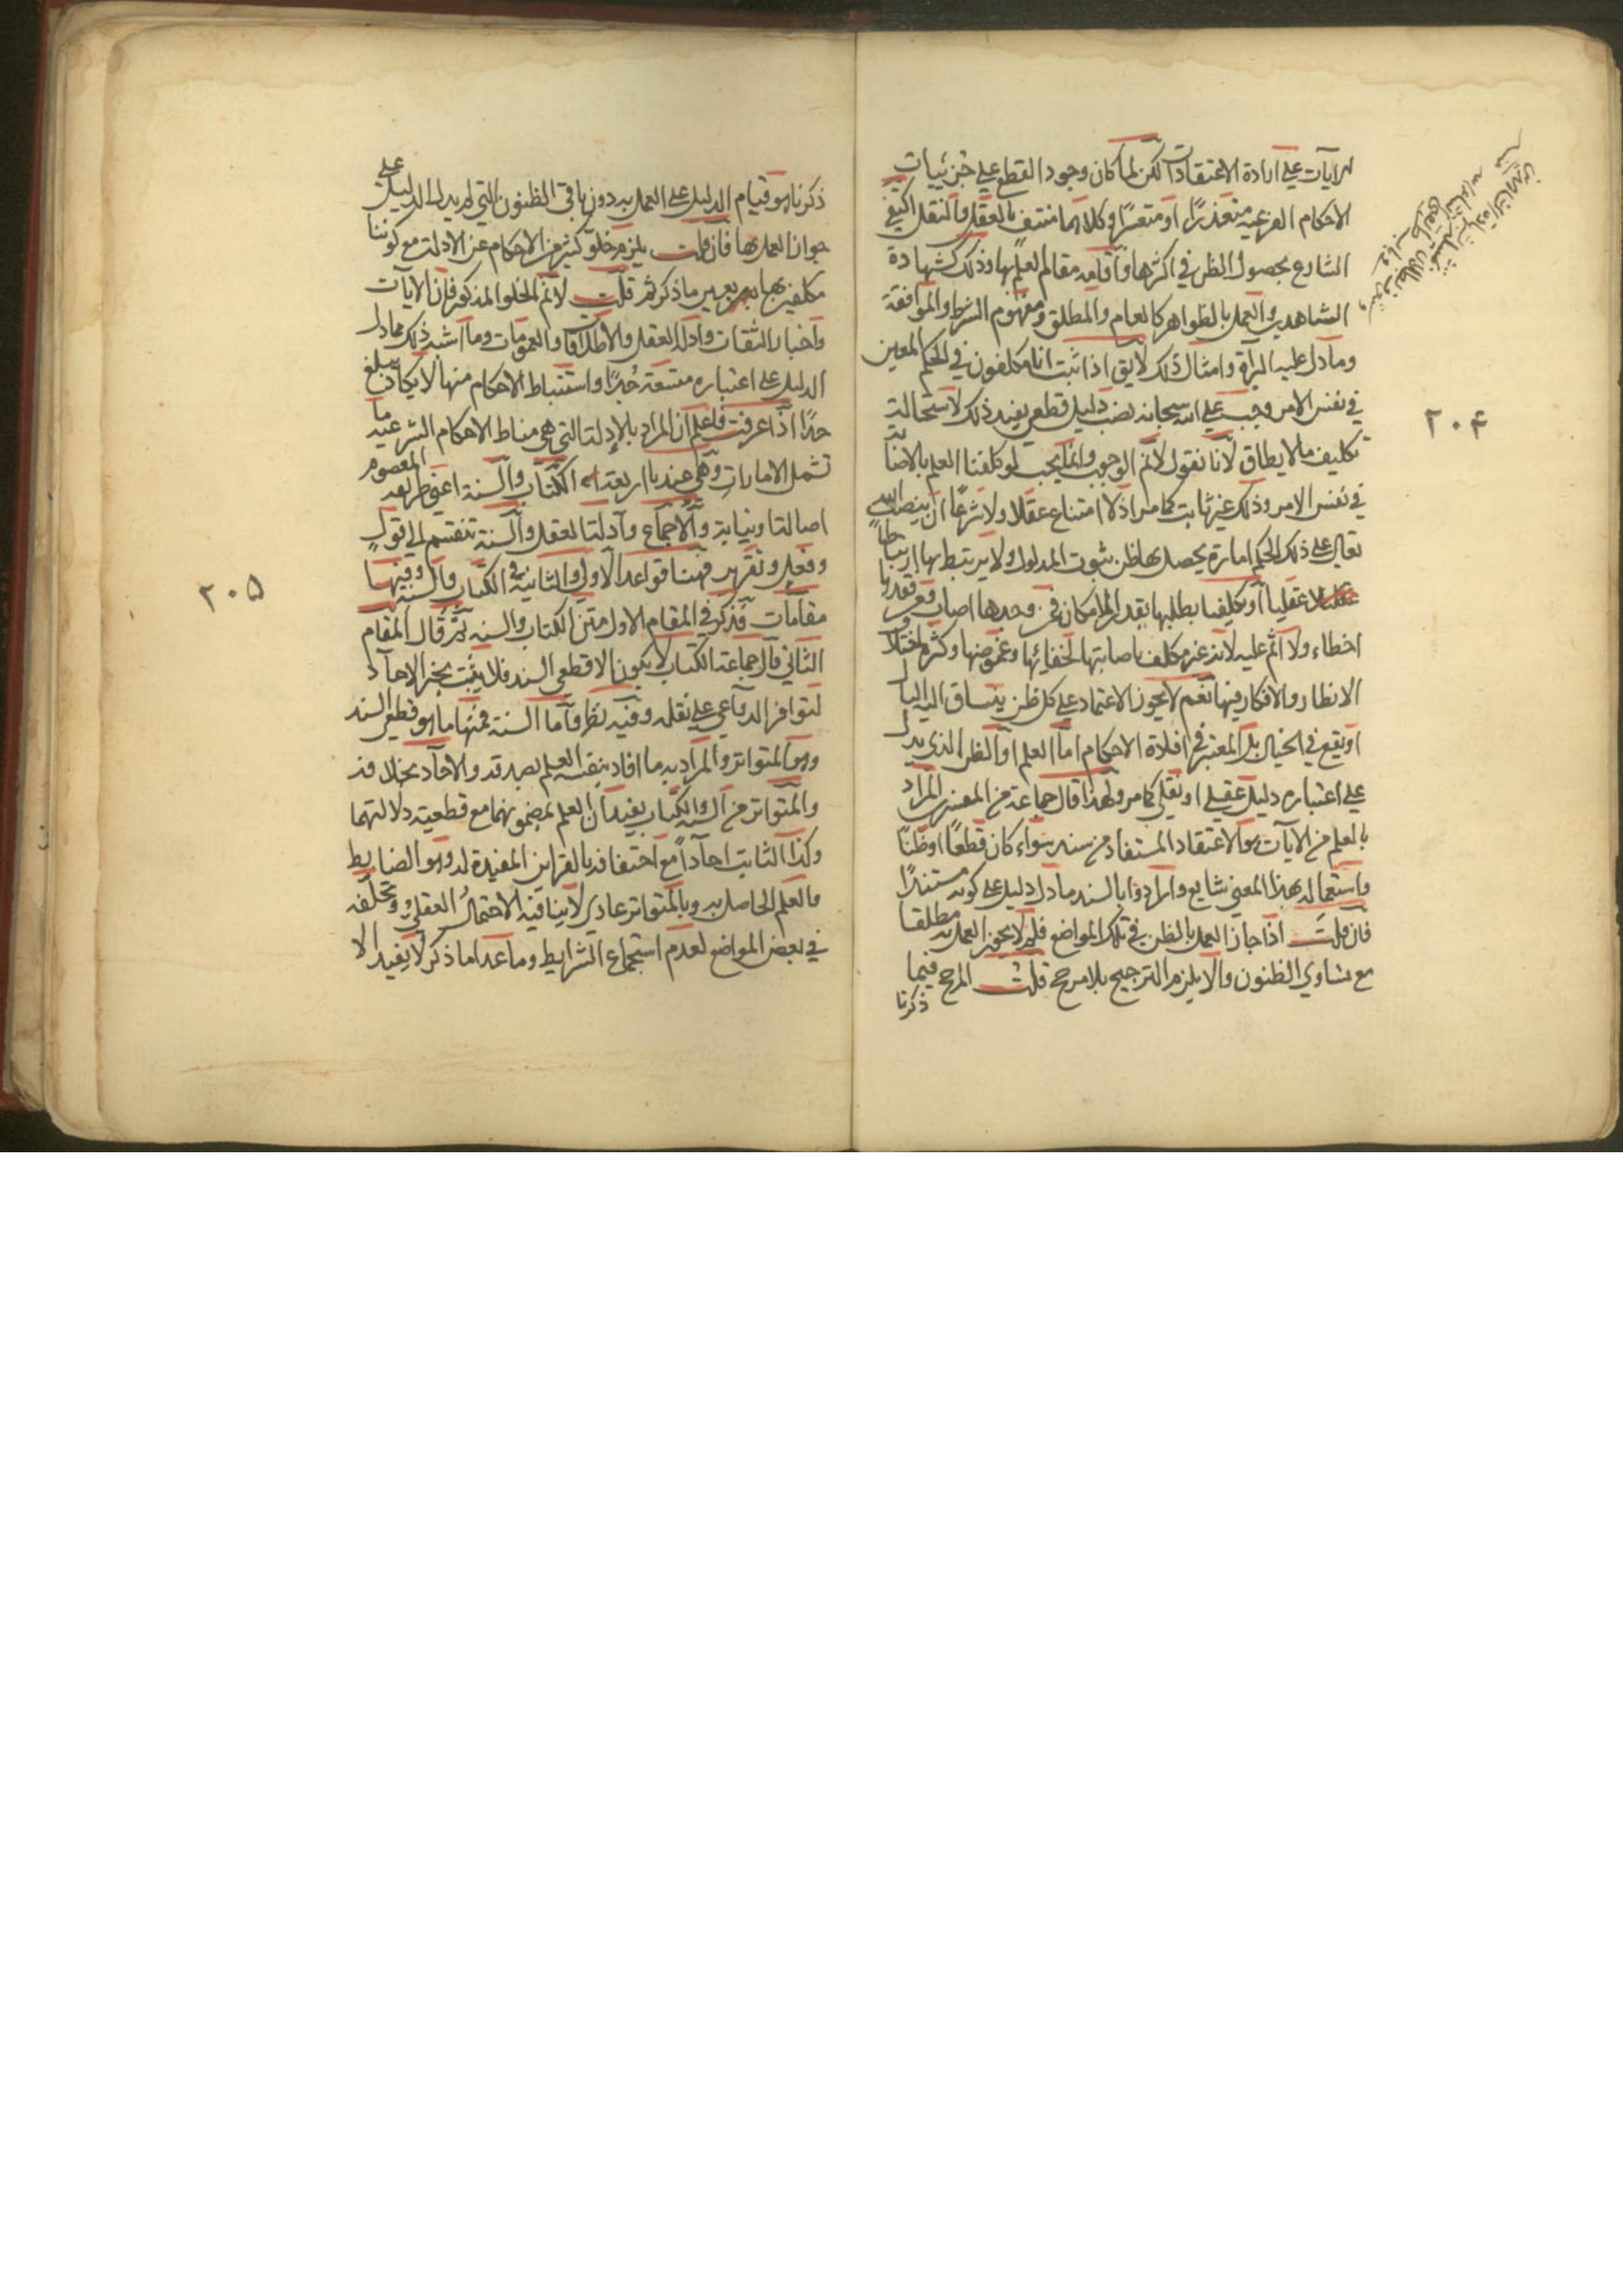 الايات على ارادة الاعتقادات لكن لما كان وجود القطع على جزئيات
الاحكام الفرعية متعذرًا او متعسرًا وكلاهما منتف بالعقل والنقل اكتفى
الشارع بحصول الظن في اكثرها واقامه مقام العلم بها وذلك كشهادة
الشاهدين والعمل بالظواهر كالعام والمطلق ومفهوم الشرط والموافقة
وما دل عليه البرأة وامثال ذلك لا يق اذا ثبت انا مكلفون في الحكم المعين
في نفس الامر وجب على الله سبحانه نصب دليل قطعي يفيد ذلك لاستحالة
تكليف ما لا يطاق لانا نقول لانم الوجوب وانما يجب لو كلفنا العلم بالاصابة
في نفس الامر وذلك غير ثابت كما مر اذ لا امتناع عقلا ولا شرعًا ان ينصب الله
تعالى على ذلك الحكم امارة يحصل بها ظن ثبوت المدلول ولا يرتبط بها ارتباطًا
عقليا او تكليفنا بطلبها بقدر الامكان فمن وجدها اصاب ومن فقدها
اخطاء ولا اثم عليه لانه غير مكلف باصابتها لخفائها وغموضها وكثرة اختلاف
الانظار والافكار فيها نعم لا يجوز الاعتماد على كل ظن ينساق اليه البال
او يقع في الخيال بل المعتبر في افادة الاحكام اما العلم او الظن الذي يدل
على اعتباره دليل عقلي او نقلي كما مر ولهذا قال جماعة من المفسرين المراد
بالعلم في الآيات هو الاعتقاد المستفاد من سند سواء كان قطعًا او ظنًا
واستعماله بهذا المعنى شايع وارادوا بالسند ما دل دليل على كونه مستندًا
فان قلت اذا جاز العمل بالظن في تلك المواضع فلم لا يجوز العمل به مطلقا
مع تساوي الظنون والا يلزم الترجيح بلا مرجح قلت المرجح فيما
ذكرنا
٢٠٤
ذكرناه هو قيام الدليل على العمل به دون باقي الظنون التي لم يدل الدليل على
جواز العمل بها فان قلت يلزم خلو كثير من الاحكام عن الادلة مع كوننا
مكلفين بها بعين ما ذكرتم قلت لانم الخلو المذكور فان الايات
واخبار الثقات وادلة العقل والاطلاقات والعمومات وما اشبه ذلك مما دل
الدليل على اعتباره متسعة جدًا واستنباط الاحكام منها لا يكاد يبلغ
حدًا اذا عرفت فاعلم ان المراد بالادلة التي هي مناط الاحكام الشرعية ما
تشمل الامارات وهي عندنا اربعة الكتاب والسنة اعني طريقة المعصوم
اصالة ونيابة والاجماع وادلة العقل والسنة تنقسم الى قول
وفعل وتقرير فهنا قواعد الاولى والثانية في الكتاب والسنة وفيها
مقامات فذكر في المقام الاول متن الكتاب والسنة ثم قال المقام
الثاني قال جماعة الكتاب لا يكون الا قطعي السند فلا يثبت بخبر الاحاد
لتوافر الدواعي على نقله وفيه نظر واما السنة فمنها ما هو قطعي السند
وهو المتواتر والمراد به ما افاد بنفسه العلم بصدقه والاحاد بخلافه
والمتواتر من السنة والكتاب يفيدان العلم بمضمونهما مع قطعية دلالتهما
وكذا الثابت احادًا مع احتفافه بالقراين المفيدة له وهو الضابط
والعلم الحاصل به وبالمتواتر عادي لا ينافيه الاحتمال العقلي وتخلفه
في بعض المواضع لعدم استجماع الشرايط وما عدا ما ذكر لا يفيد الا
٢٠٥